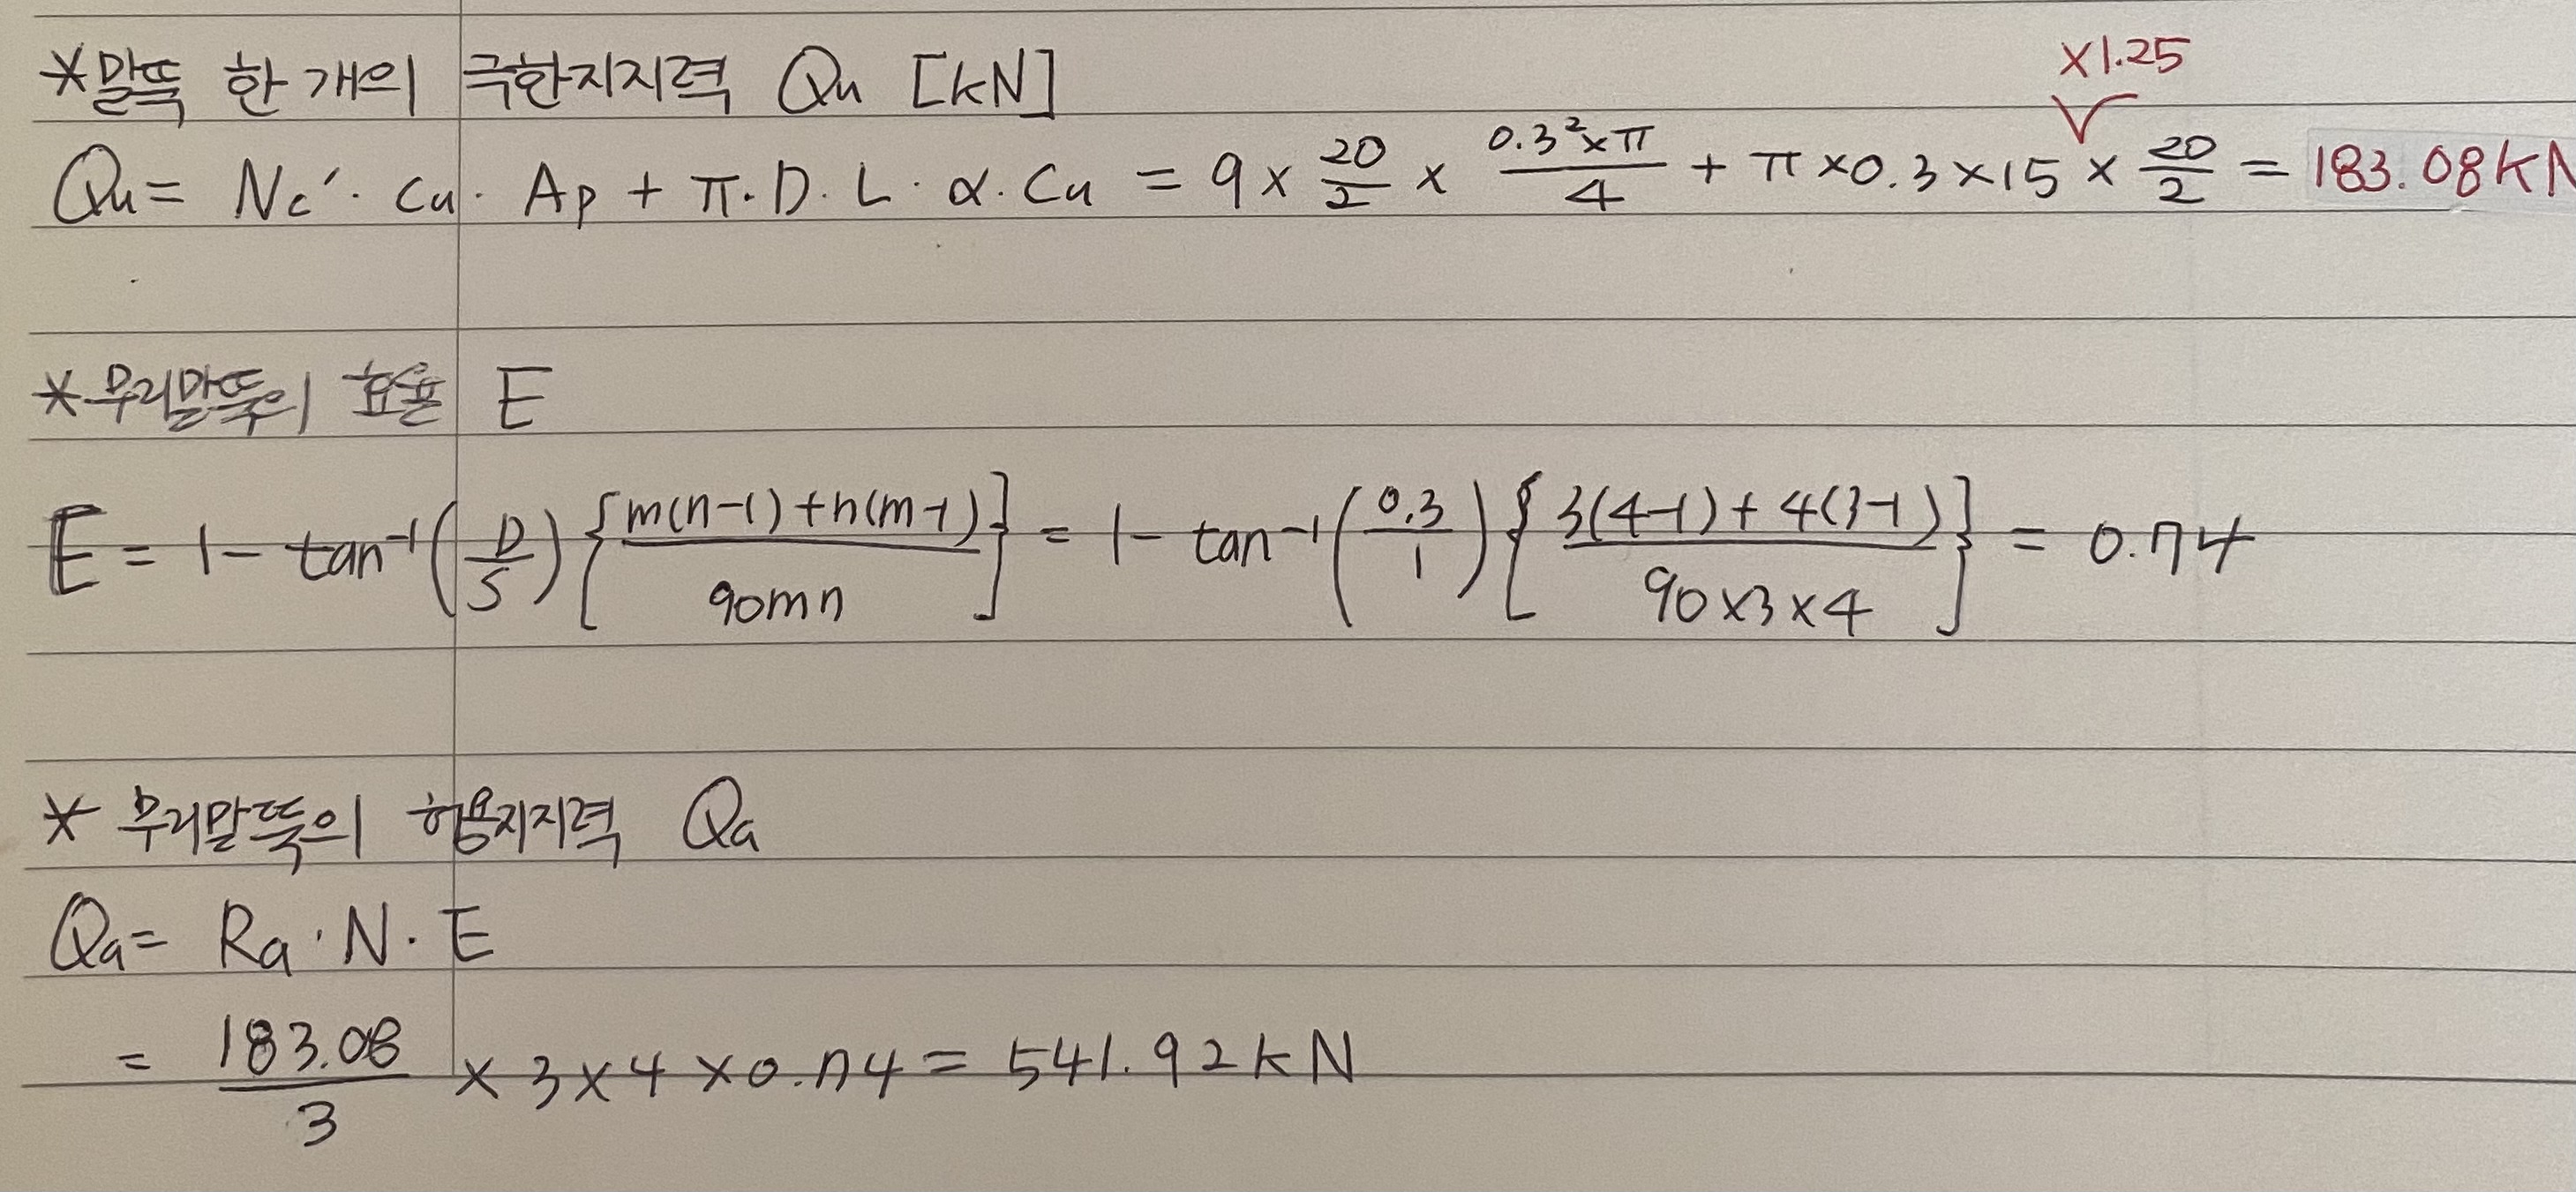 *말뚝 한 개의 극한지지력 Qu [kN]
×1.25
Qu = Nc′· Cu · Ap + π · D · L · α · Cu = 9 × 20/2 × 0.3²×π/4 + π × 0.3 × 15 × 20/2 = 183.08kN
*무리말뚝의 효율 E
E = 1 - tan⁻¹(D/S){m(n-1)+n(m-1)/90mn} = 1 - tan⁻¹(0.3/1){3(4-1)+4(3-1)/90×3×4} = 0.74
* 무리말뚝의 허용지지력 Qa
Qa = Ra · N · E
= 183.08/3 × 3 × 4 × 0.74 = 541.92kN